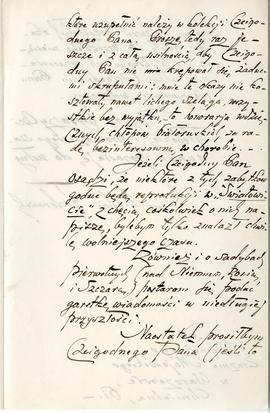 które uzupełnić należy w kolekcji Czcigo-
dnego Pana. Proszę tedy raz je-
szcze i z całą usilnością, aby Czcigo-
dny Pan nie krępował się żadne-
mi skrupułami: mnie te okazy nie ko-
sztowały nawet lichego szeląga, wszy-
stkie bez wyjątku, to honorarja wdzię-
cznych chłopów białoruskich za ra-
dę, bezinteresowną w chorobie. —
Jeżeli Czcigodny Pan
osądzi, że niektóre z tych zabytków
godne będą reprodukcji w „Światowi-
cie” z chęcią cośkolwiek o nich na-
piszę, byłebym tylko znalazł chwi-
lę wolniejszego czasu.
Również o sadybach
pierwotnych nad Niemnem,
i Szczarą, postaram się podać
garstkę wiadomości w niedługiej
przyszłości.
Naostatek prosiłbym
Czcigodnego Pana (jeśli to